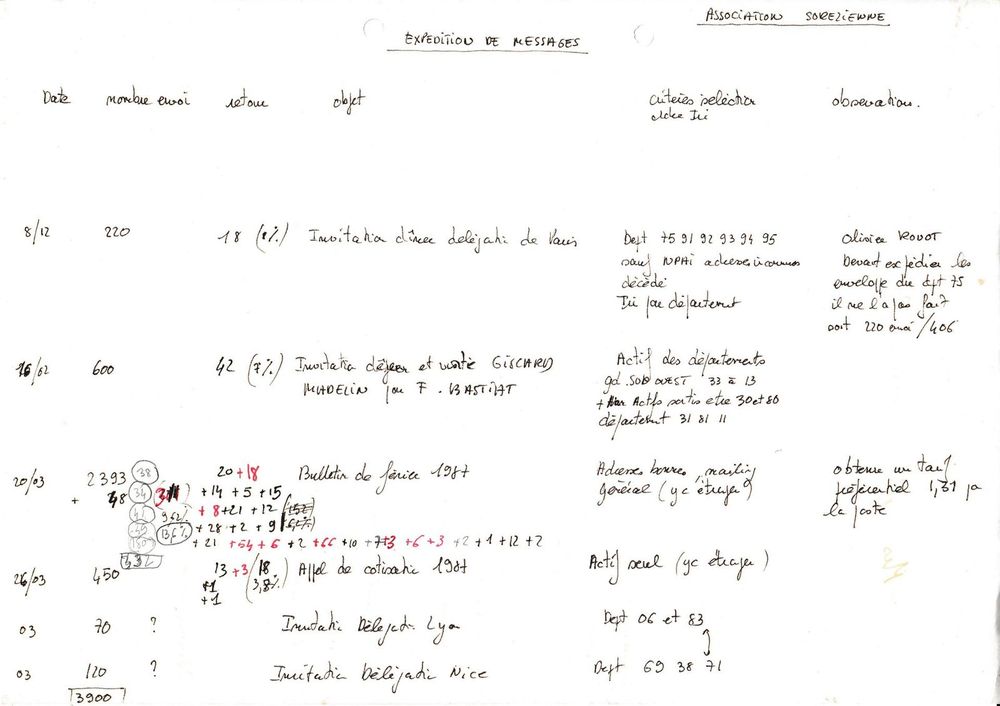 ASSOCIATION SOREZIENNE
EXPEDITION DE MESSAGES
Date nombre envoi retour objet critères sélection observation.
8/12 220 18 (8%) Invitation dîner délégation de Paris Dept 75 91 92 93 94 95 Olivier
sauf NPAI adresses inconnues Devait expédier les
décédé enveloppe du dpt 75
Tri par département il ne l'a pas fait
soit 220 envoi /406
16/02 600 42 (7%) Invitation déjeuner et visite GISCARD Actif des départements
MADELIN par F. BASTIAT gd SUD OUEST 33 à 13
+ Actifs sortis entre 30 et 80
département 31 81 11
20/03 2393 38 20 +18 Bulletin de février 1987 Adresses bonnes, mailing obtenu un tarif
+ 48 34 +14 +5 +15 Général (yc étranger) préférentiel 1,31 par
+8 +21 +12 la poste
136% +28 +2 +9
+21 +54 +6 +2 +66 +10 +7 +3 +6 +3 +2 +1 +12 +2
432
26/03 450 13 +3 /18 Appel de cotisation 1987 Actif seul (yc étranger)
+1 (3,8%)
+1
03 70 ? Invitation Délégation Lyon Dept 06 et 83
03 120 ? Invitation Délégation Nice Dept 69 38 71
3900